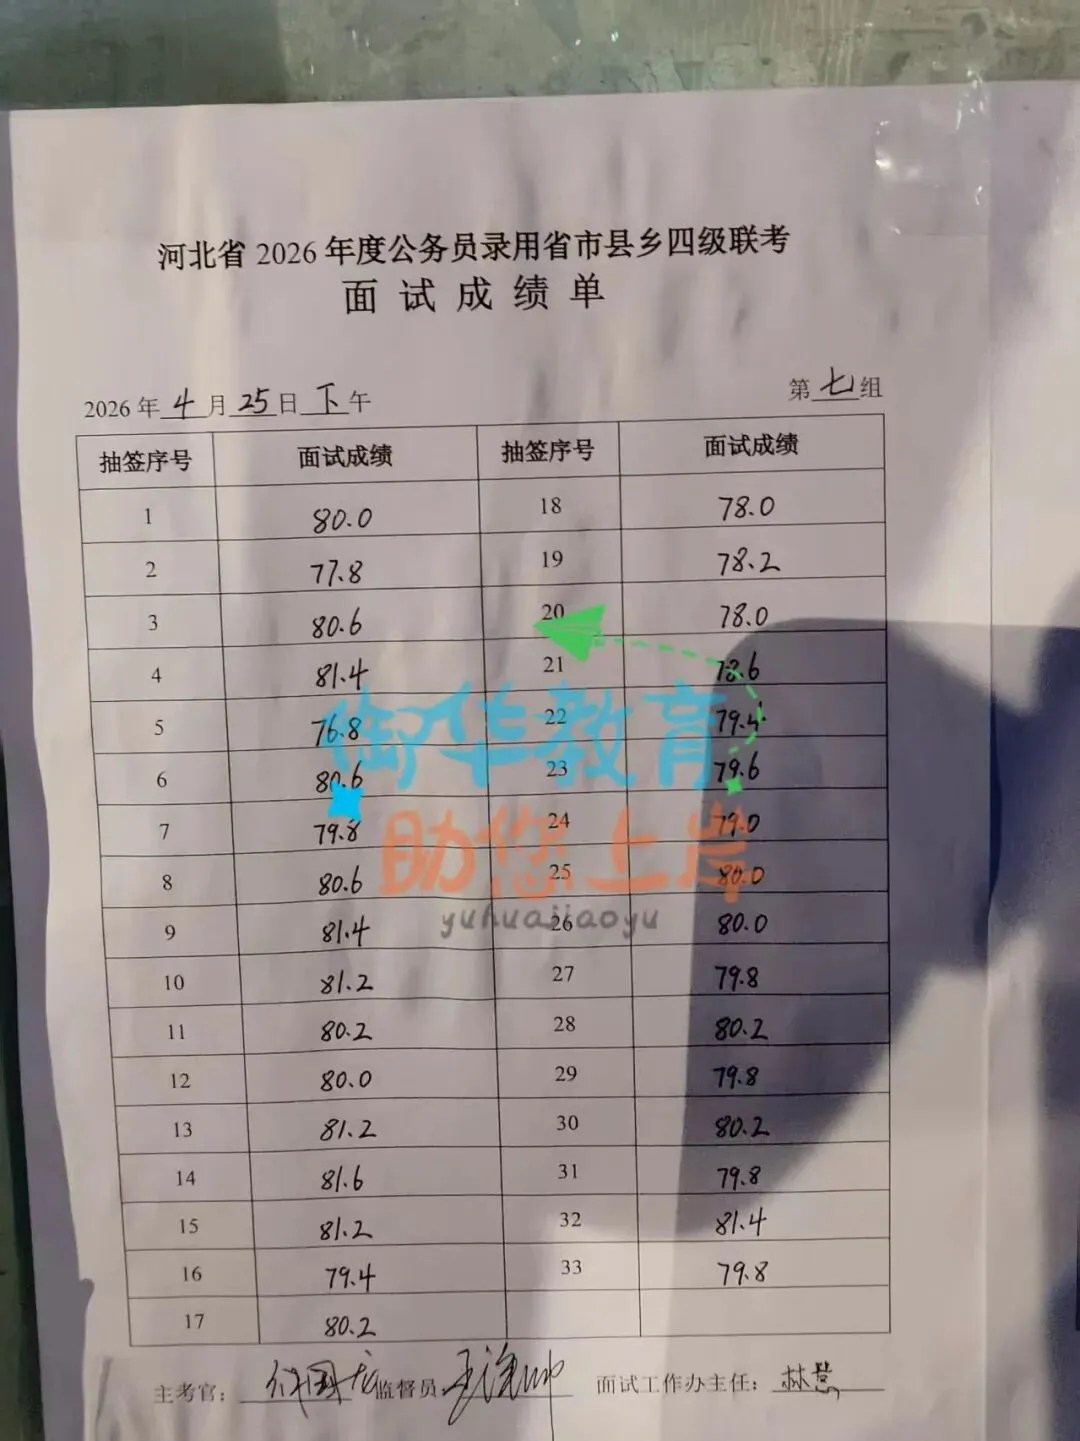 河北省 2026 年度公务员录用省市县乡四级联考
面试成绩单
2026 年 4 月 25 日 下午
第 七 组
抽签序号 面试成绩 抽签序号 面试成绩
1 80.0 18 78.0
2 77.8 19 78.2
3 80.6 20 78.0
4 81.4 21 78.6
5 76.8 22 79.4
6 80.6 23 79.6
7 79.8 24 79.0
8 80.6 25 80.0
9 81.4 26 80.0
10 81.2 27 79.8
11 80.2 28 80.2
12 80.0 29 79.8
13 81.2 30 80.2
14 81.6 31 79.8
15 81.2 32 81.4
16 79.4 33 79.8
17 80.2
御华教育
助您上岸
yuhuajiaoyu
主考官： 监督员 面试工作办主任： 林慧